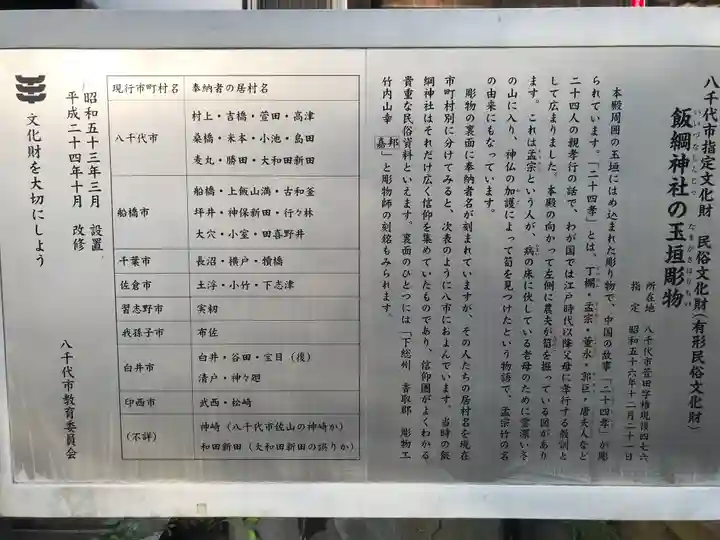 八千代市指定文化財　民俗文化財(有形民俗文化財)
飯綱神社の玉垣彫物
いいづなじんじゃ　たまがきほりもの
所在地　八千代市萱田字権現後四七六
指　定　昭和五十六年十二月二十一日
本殿周囲の玉垣にはめ込まれた彫り物で、中国の故事「二十四孝」が彫
られています。「二十四孝」とは、丁欄・孟宗・董永・郭巨・唐夫人など
二十四人の親孝行の話で、わが国では江戸時代以降父母に孝行する教訓と
して広まりました。本殿の向かって左側に農夫が筍を掘っている図があり
ます。これは孟宗という人が、病の床に伏している老母のために雪深い冬
の山に入り、神仏の加護によって筍を見つけたという物語で、孟宗竹の名
の由来にもなっています。
彫物の裏面に奉納者名が刻まれていますが、その人たちの居村名を現在
市町村別に分けてみると、次表のように八市におよんでいます。当時の飯
綱神社はそれだけ広く信仰を集めていたものであり、信仰圏がよくわかる
貴重な民俗資料といえます。裏面のひとつには「下総州　香取郡　彫物工
竹内山幸　嘉邦」と彫物師の刻銘もみられます。
現行市町村名　奉納者の居村名
八千代市　村上・吉橋・萱田・高津
桑橋・米本・小池・島田
麦丸・勝田・大和田新田
船橋市　船橋・上飯山満・古和釜
坪井・神保新田・行々林
大穴・小室・田喜野井
千葉市　長沼・横戸・犢橋
佐倉市　土浮・小竹・下志津
習志野市　実籾
我孫子市　布佐
白井市　白井・谷田・宝目(復)
清戸・神々廻
印西市　武西・松崎
(不詳)　神崎(八千代市佐山の神崎か)
和田新田(大和田新田の誤りか)
昭和五十三年三月　設置
平成二十四年十月　改修
文化財を大切にしよう
八千代市教育委員会